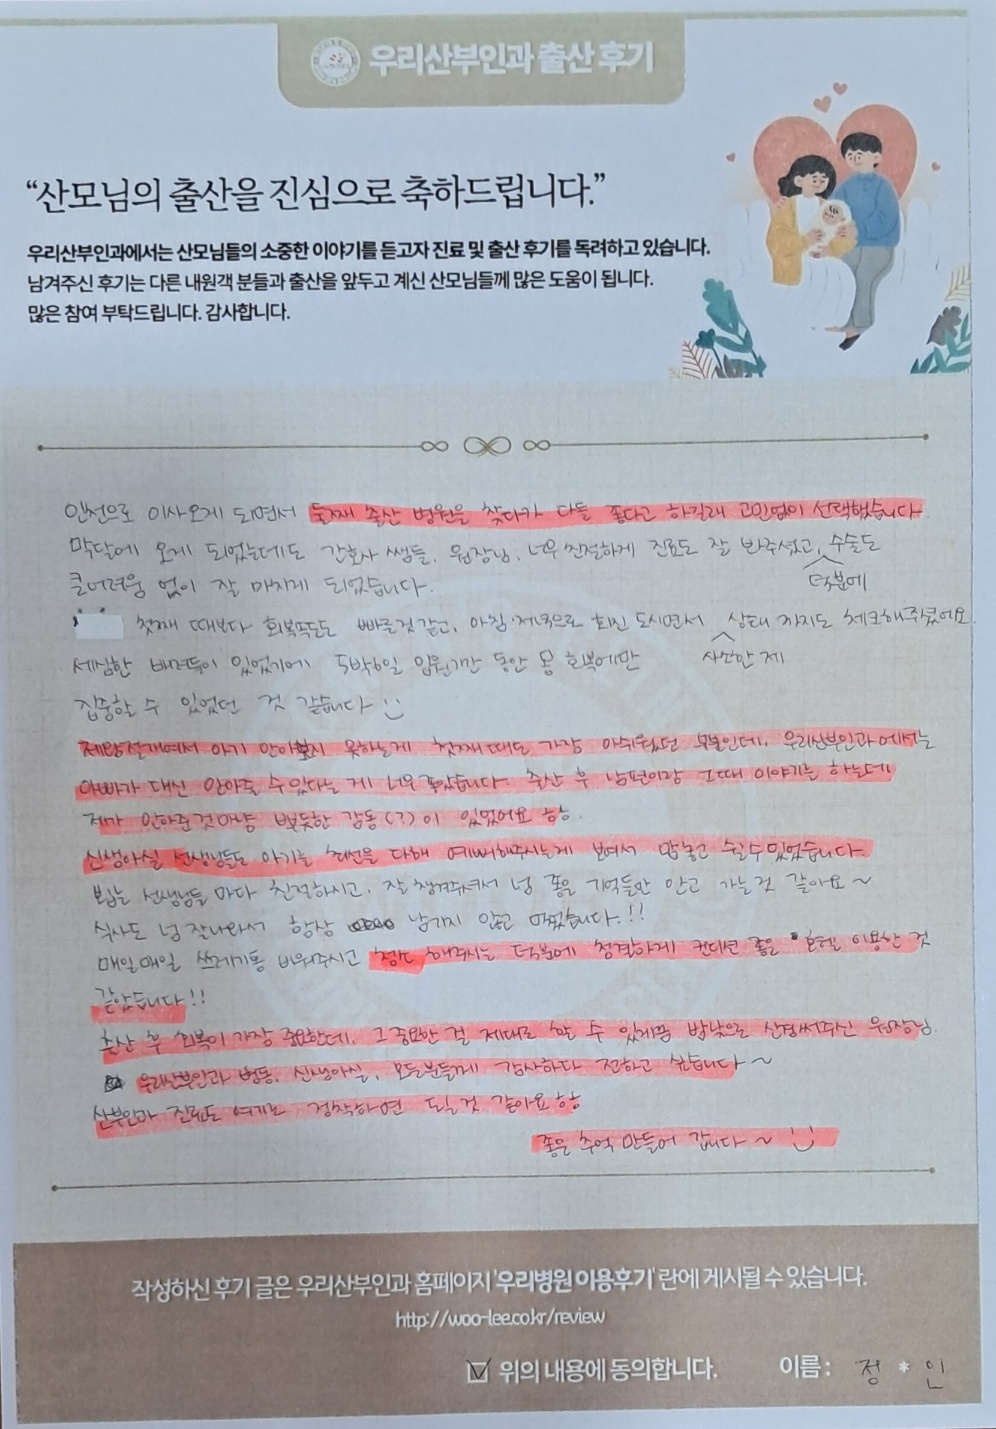 우리산부인과 출산 후기
“산모님의 출산을 진심으로 축하드립니다.”
우리산부인과에서는 산모님들의 소중한 이야기를 듣고자 진료 및 출산 후기를 독려하고 있습니다.
남겨주신 후기는 다른 내원객 분들과 출산을 앞두고 계신 산모님들께 많은 도움이 됩니다.
많은 참여 부탁드립니다. 감사합니다.
인천으로 이사오게 되면서 둘째 출산 병원을 찾다가 다들 좋다고 하길래 고민없이 선택했습니다
막달에 오게 되었는데도 간호사 쌤들, 원장님, 너무 친절하게 진료도 잘 봐주셨고, 수술도
덕분에
큰어려움 없이 잘 마치게 되었습니다.
첫째 때보다 회복또도 빠른것 같고, 아침 저녁으로 회진 도시면서 상태 까지도 체크해주셨어요.
사소한 제
세심한 배려들이 있었기에 5박6일 입원기간 동안 몸 회복에만
집중할 수 있었던 것 같습니다 :)
제왕절개여서 아기 안아보지 못하는게 첫째때도 가장 아쉬웠던 부분인데, 우리산부인과에서는
아빠가 대신 안아줄 수 있다는 게 너무 좋았습니다. 출산 후 남편이랑 그때 이야기를 하는데
제가 안아준것 마냥 뿌듯한 감동(?)이 있었어요 ㅎㅎ.
신생아실 선생님들도 아기를 최선을 다해 예뻐해주시는게 보여서 맘놓고 쉴수있었습니다.
뵙는 선생님들 마다 친절하시고, 잘 챙겨주셔서 넘 좋은 기억들만 안고 가는것 같아요~
식사도 넘 잘나와서 항상 남기지 않고 먹었습니다.!!
매일매일 쓰레기통 비워주시고 청소 해주시는 덕분에 청결하게 컨디션 좋은 호텔 이용한 것
같았습니다!!
출산 후 회복이 가장 중요한데, 그 중요한 걸 제대로 할 수 있게끔 밤낮으로 신경써주신 원장님.
우리산부인과 병동, 신생아실, 모든분들께 감사하다 전하고 싶습니다~
산부인과 진료도 여기로 정착하면 될 것 같아요 ㅎㅎ
좋은 추억 만들어 갑니다~ :)
작성하신 후기 글은 우리산부인과 홈페이지 '우리병원 이용후기' 란에 게시될 수 있습니다.
http://woo-lee.co.kr/review
☑ 위의 내용에 동의합니다. 이름 : 정 * 인